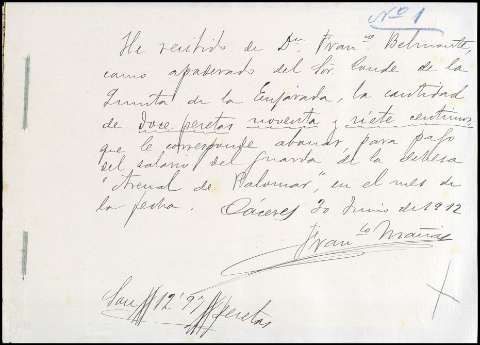 Nº 1
He recibido de Dn. Franco. Belmonte,
como apoderado del Sor. Conde de la
Quinta de la Enjarada, la cantidad
de doce pesetas noventa y siete centimos
que le corresponde abonar, para pago
del salario del guarda de la dehesa
"Arenal de Palomar", en el mes de
la fecha. Cáceres 30 Junio de 1912
Franco
Son 12'97 pesetas